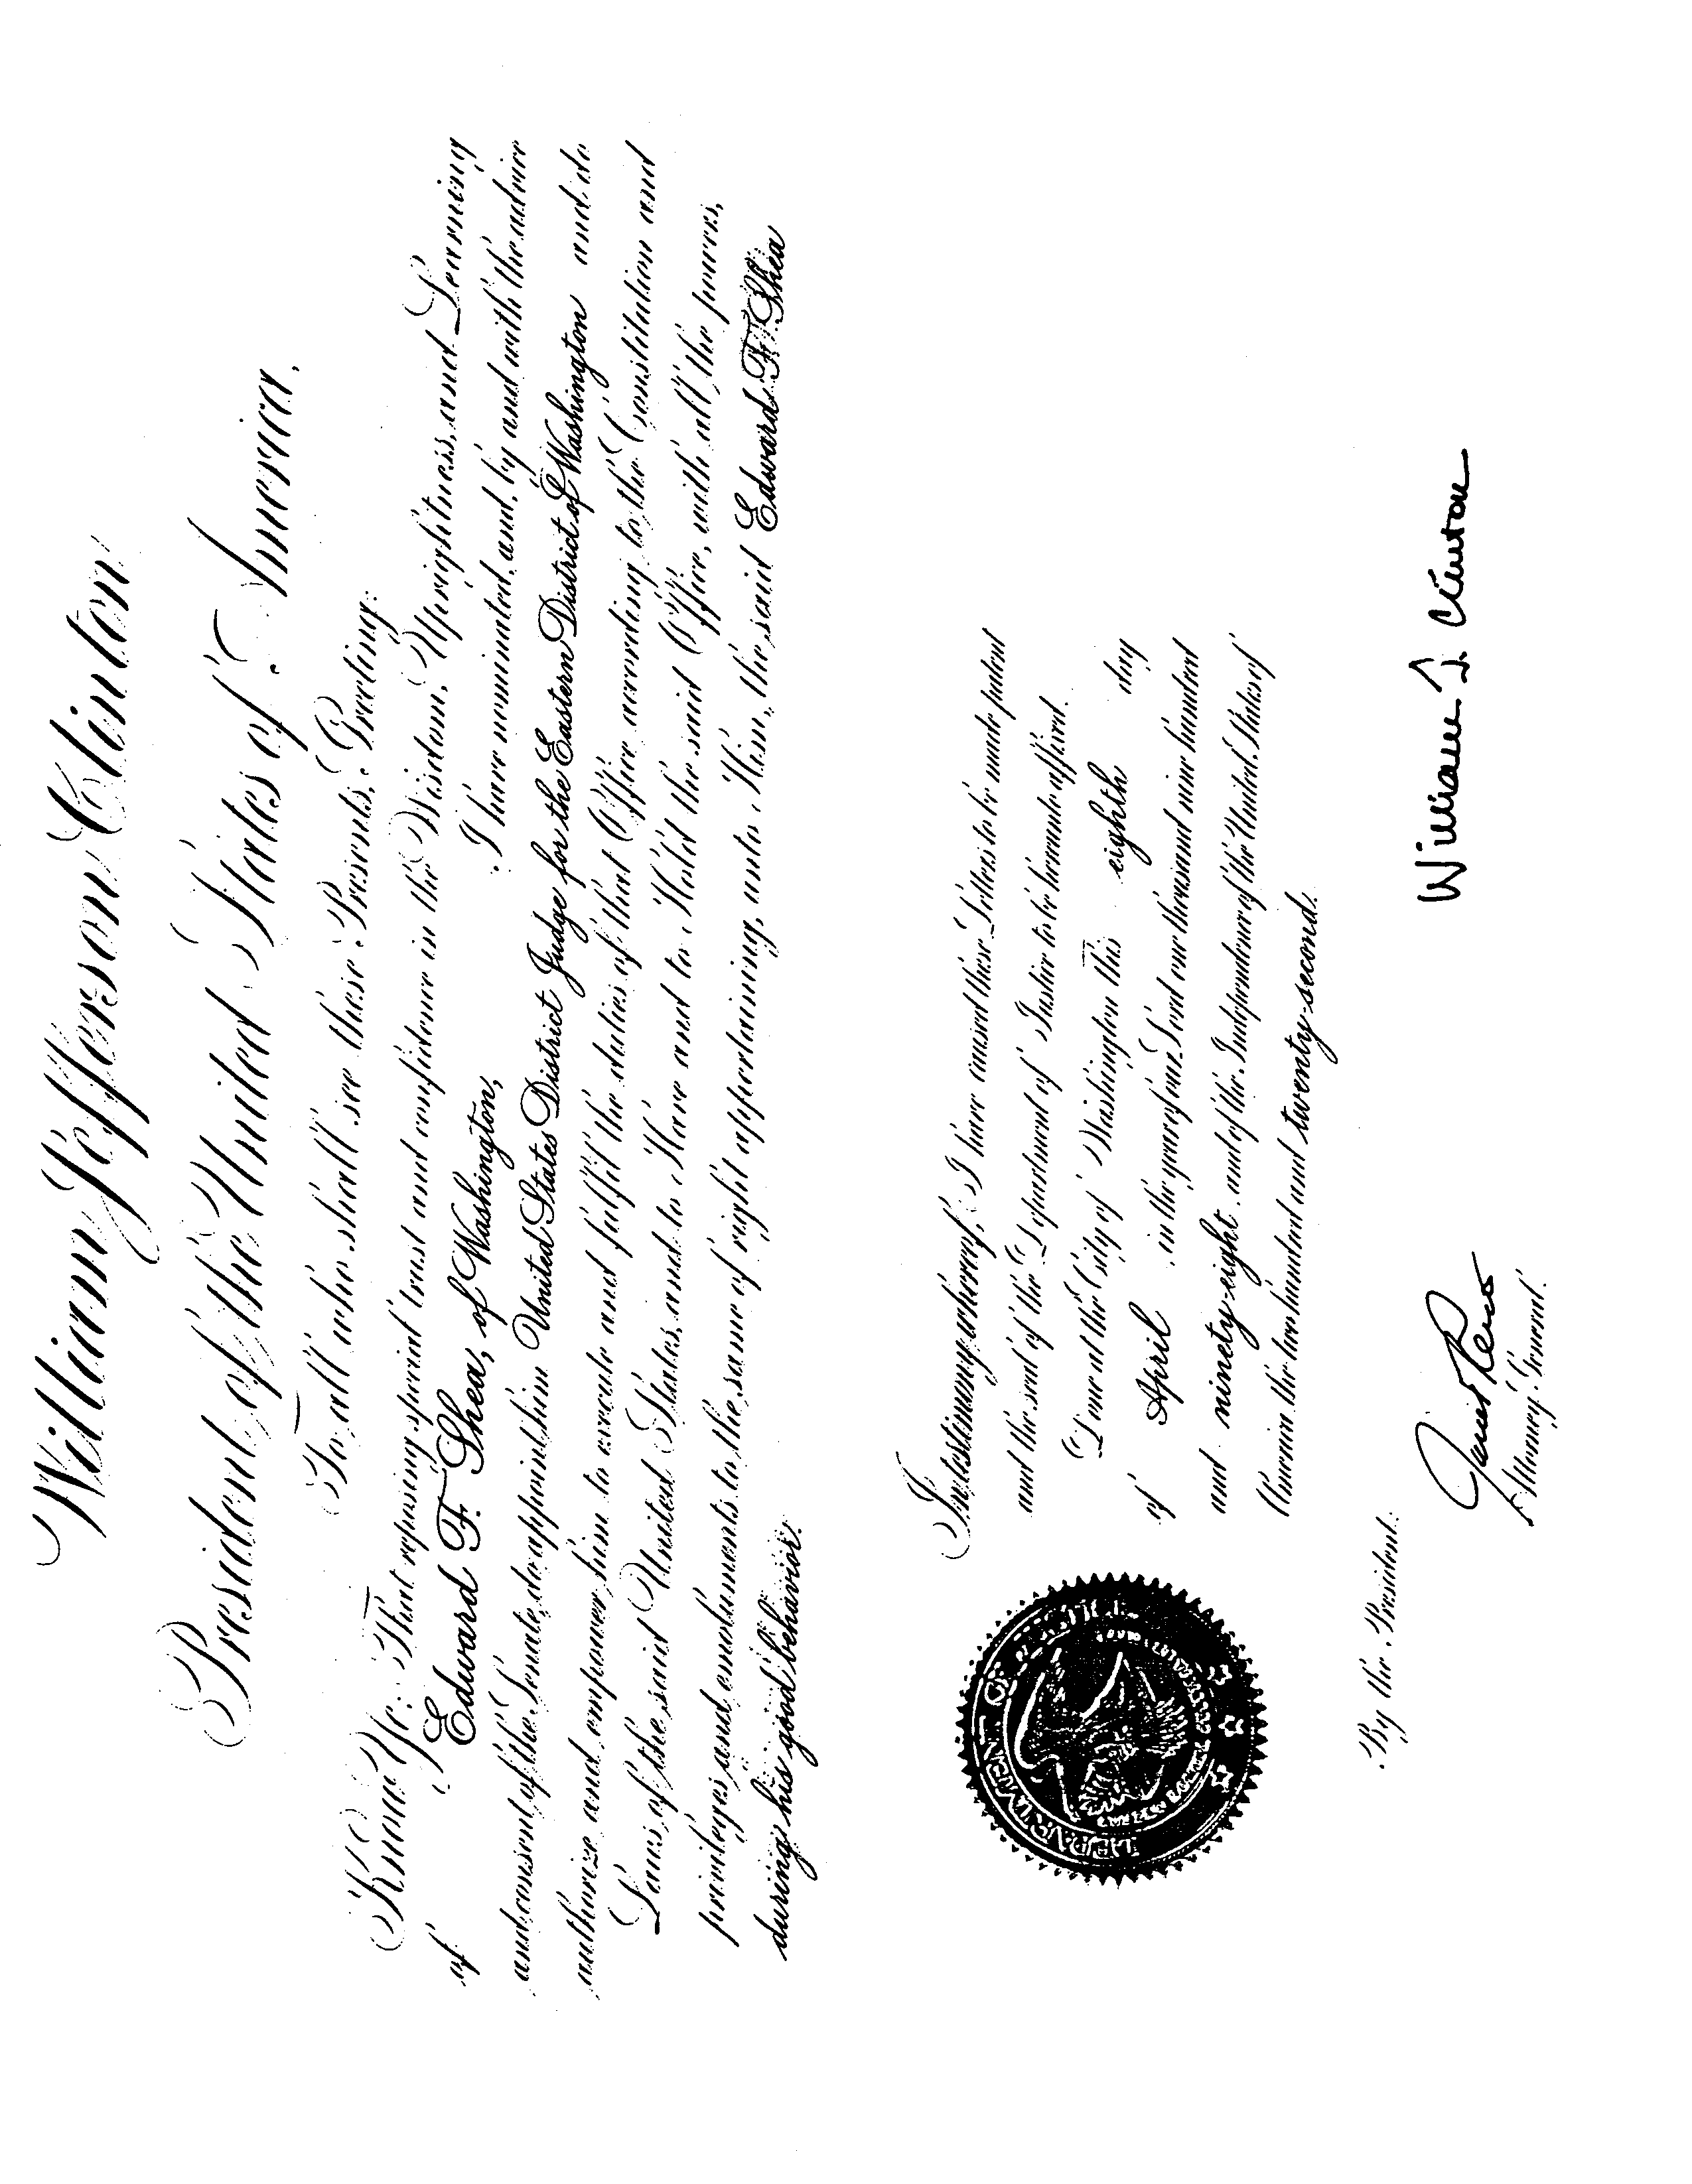 William Jefferson Clinton
President of the United States of America,
To all who shall see these Presents, Greeting:
Know Ye: That reposing special trust and confidence in the Wisdom, Uprightness, and Learning
of Edward F. Shea, of Washington, I have nominated, and, by and with the advice
and consent of the Senate, do appoint him United States District Judge for the Eastern District of Washington and do
authorize and empower him to execute and fulfil the duties of that Office according to the Constitution and
Laws of the said United States, and to Have and to Hold the said Office, with all the powers,
privileges and emoluments to the same of right appertaining, unto Him, the said Edward F. Shea
during his good behavior.
In testimony whereof, I have caused these Letters to be made patent
and the seal of the Department of Justice to be hereunto affixed.
Done at the City of Washington this eighth day
of April in the year of our Lord one thousand nine hundred
and ninety-eight and of the Independence of the United States of
America the two hundred and twenty-second.
DEPARTMENT OF JUSTICE
William J. Clinton
By the President:
Janet Reno
Attorney General.